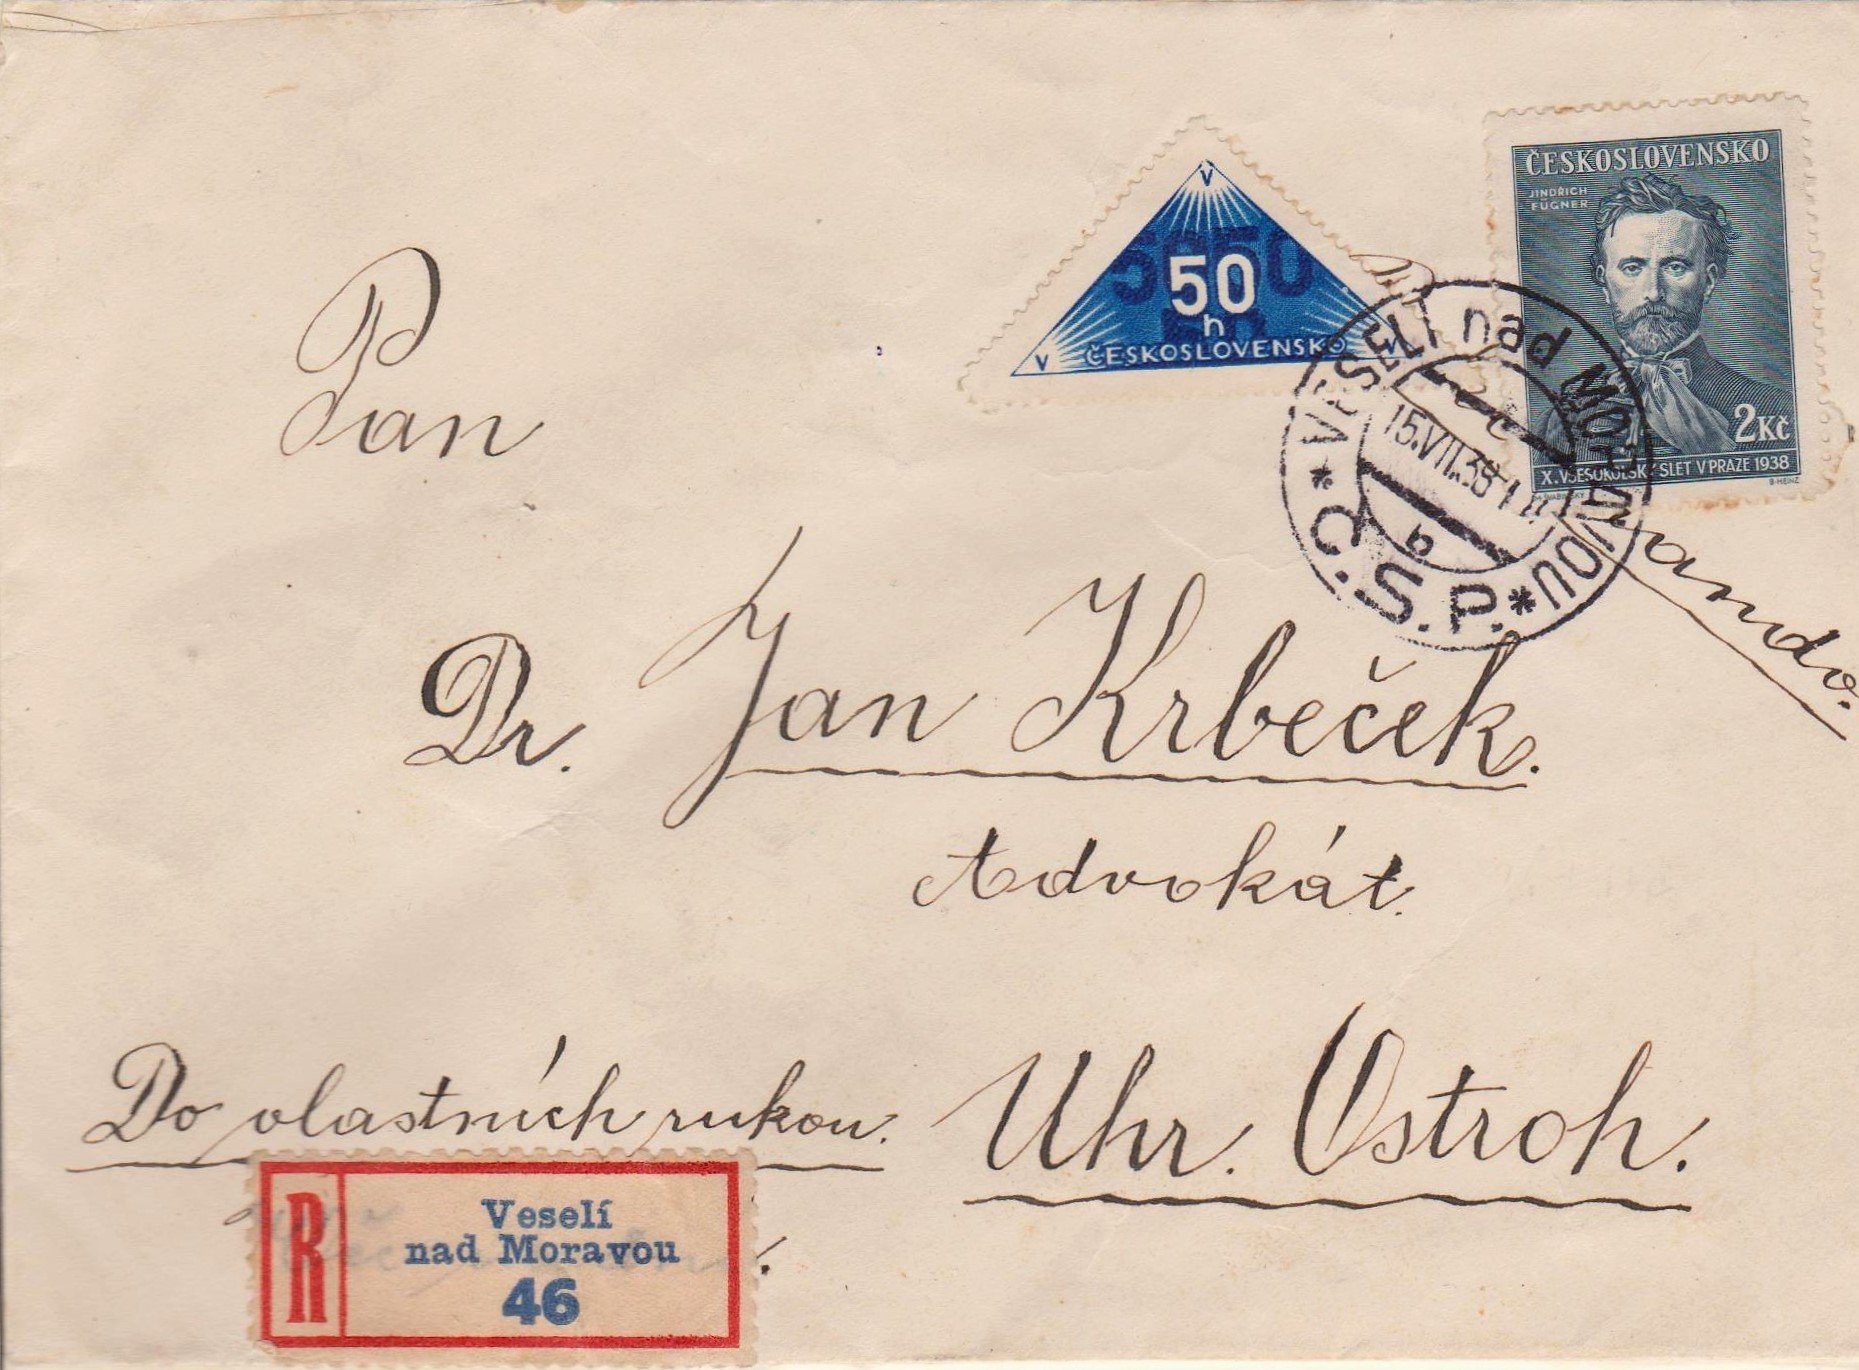 ČESKOSLOVENSKO
JINDŘICH
FÜGNER
2Kč
X. VŠESOKOLSKÝ SLET V PRAZE 1938
B. HEINZ
V
50
h
V ČESKOSLOVENSKO V
* VESELÍ nad MORAVOU *
15.VII.38
b
Č.S.P.
Pan
Dr. Jan Krbeček.
Advokát.
Do vlastních rukou.
Uhr. Ostroh.
R
Veselí
nad Moravou
46